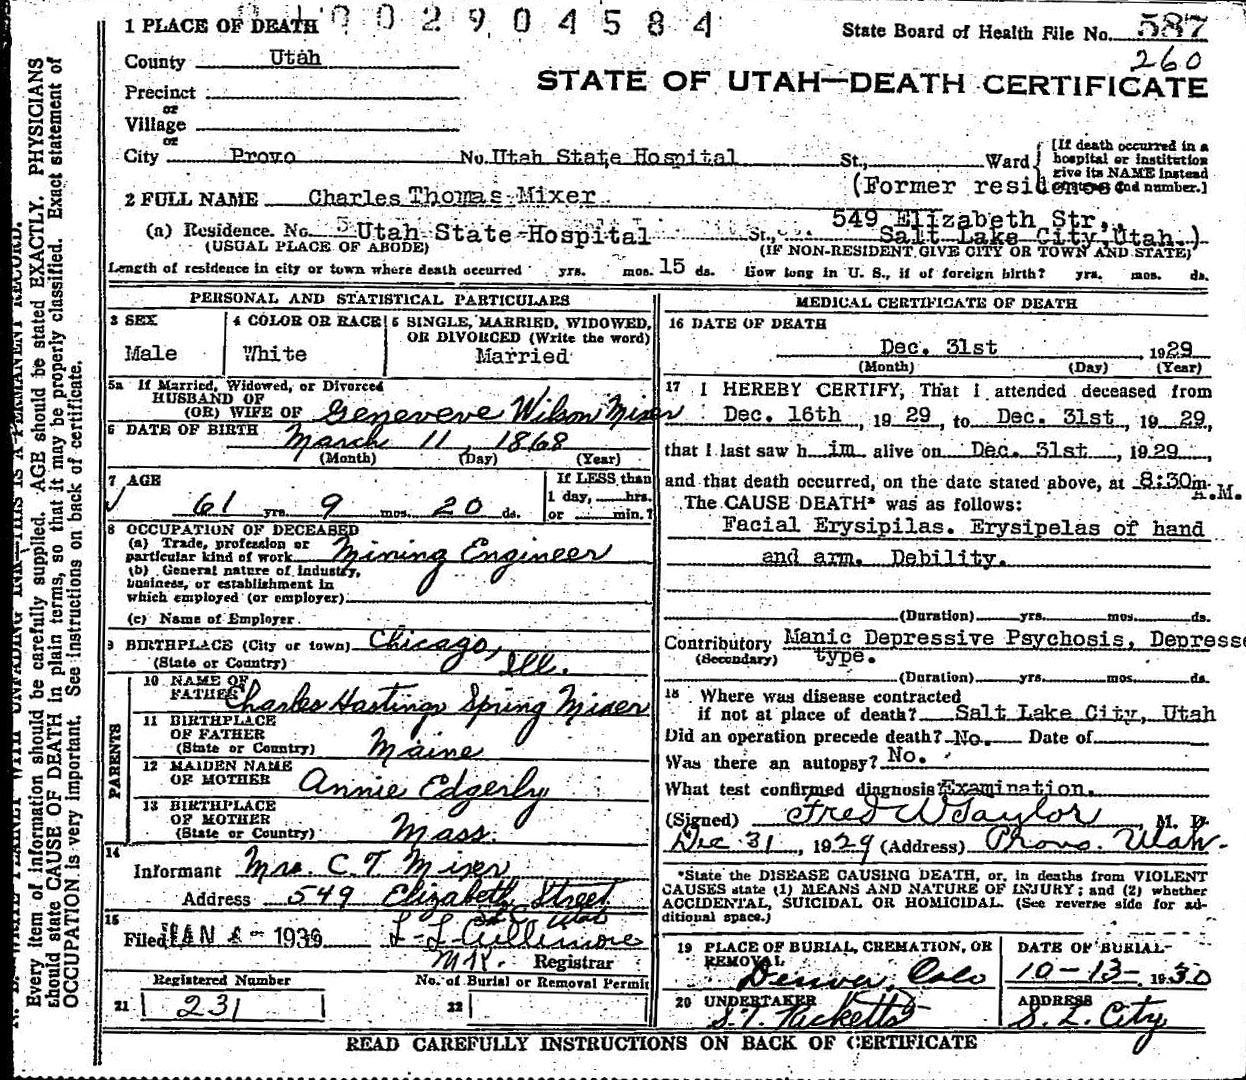 002904584
1 PLACE OF DEATH
State Board of Health File No. 587
260
County Utah
STATE OF UTAH—DEATH CERTIFICATE
Precinct
or
Village
or
City Provo No. Utah State Hospital St., Ward
[If death occurred in a hospital or institution give its NAME instead and number.]
(Former residence
2 FULL NAME Charles Thomas Mixer
549 Elizabeth Str.,
(a) Residence. No. Utah State Hospital St., Salt Lake City, Utah.)
(USUAL PLACE OF ABODE) (IF NON-RESIDENT GIVE CITY OR TOWN AND STATE)
Length of residence in city or town where death occurred yrs. mos. 15 ds. How long in U. S., if of foreign birth? yrs. mos. ds.
PERSONAL AND STATISTICAL PARTICULARS
3 SEX
Male
4 COLOR OR RACE
White
5 SINGLE, MARRIED, WIDOWED, OR DIVORCED (Write the word)
Married
5a If Married, Widowed, or Divorced
HUSBAND OF
(OR) WIFE OF Geneveve Wilson Mixer
6 DATE OF BIRTH March 11, 1868
(Month) (Day) (Year)
7 AGE
61 yrs. 9 mos. 20 ds.
If LESS than
1 day, hrs.
or min.?
8 OCCUPATION OF DECEASED
(a) Trade, profession or
particular kind of work Mining Engineer
(b) General nature of industry,
business, or establishment in
which employed (or employer)
(c) Name of Employer
9 BIRTHPLACE (City or town) Chicago,
(State or Country) Ill.
PARENTS
10 NAME OF
FATHER Charles Hastings Spring Mixer
11 BIRTHPLACE
OF FATHER
(State or Country) Maine
12 MAIDEN NAME
OF MOTHER Annie Edgerly
13 BIRTHPLACE
OF MOTHER
(State or Country) Mass.
14
Informant Mrs. C. T. Mixer
Address 549 Elizabeth Street
S.L.C. Utah
15
Filed JAN 1930 L. L. Cullimore
Registrar
Registered Number No. of Burial or Removal Permit
21 231 22
MEDICAL CERTIFICATE OF DEATH
16 DATE OF DEATH
Dec. 31st, 1929
(Month) (Day) (Year)
17 I HEREBY CERTIFY, That I attended deceased from
Dec. 16th, 1929, to Dec. 31st, 1929,
that I last saw h im alive on Dec. 31st, 1929,
and that death occurred, on the date stated above, at 8:30m. A.M.
The CAUSE DEATH* was as follows:
Facial Erysipilas. Erysipelas of hand
and arm. Debility.
(Duration) yrs. mos. ds.
Contributory Manic Depressive Psychosis, Depresse
(Secondary) type.
(Duration) yrs. mos. ds.
18 Where was disease contracted
if not at place of death? Salt Lake City, Utah
Did an operation precede death? No. Date of
Was there an autopsy? No.
What test confirmed diagnosis Examination.
(Signed) Fred W Taylor, M. D.
Dec 31, 1929 (Address) Provo. Utah.
*State the DISEASE CAUSING DEATH, or, in deaths from VIOLENT
CAUSES state (1) MEANS AND NATURE OF INJURY; and (2) whether
ACCIDENTAL, SUICIDAL OR HOMICIDAL. (See reverse side for ad-
ditional space.)
19 PLACE OF BURIAL, CREMATION, OR
REMOVAL
Denver, Colo
DATE OF BURIAL
10-13-1930
20 UNDERTAKER
S. T. Ricketts
ADDRESS
S. L. City
READ CAREFULLY INSTRUCTIONS ON BACK OF CERTIFICATE
WRITE PLAINLY WITH UNFADING INK—THIS IS A PERMANENT RECORD.
Every item of information should be carefully supplied. AGE should be stated EXACTLY. PHYSICIANS
should state CAUSE OF DEATH in plain terms, so that it may be properly classified. Exact statement of
OCCUPATION is very important. See instructions on back of certificate.